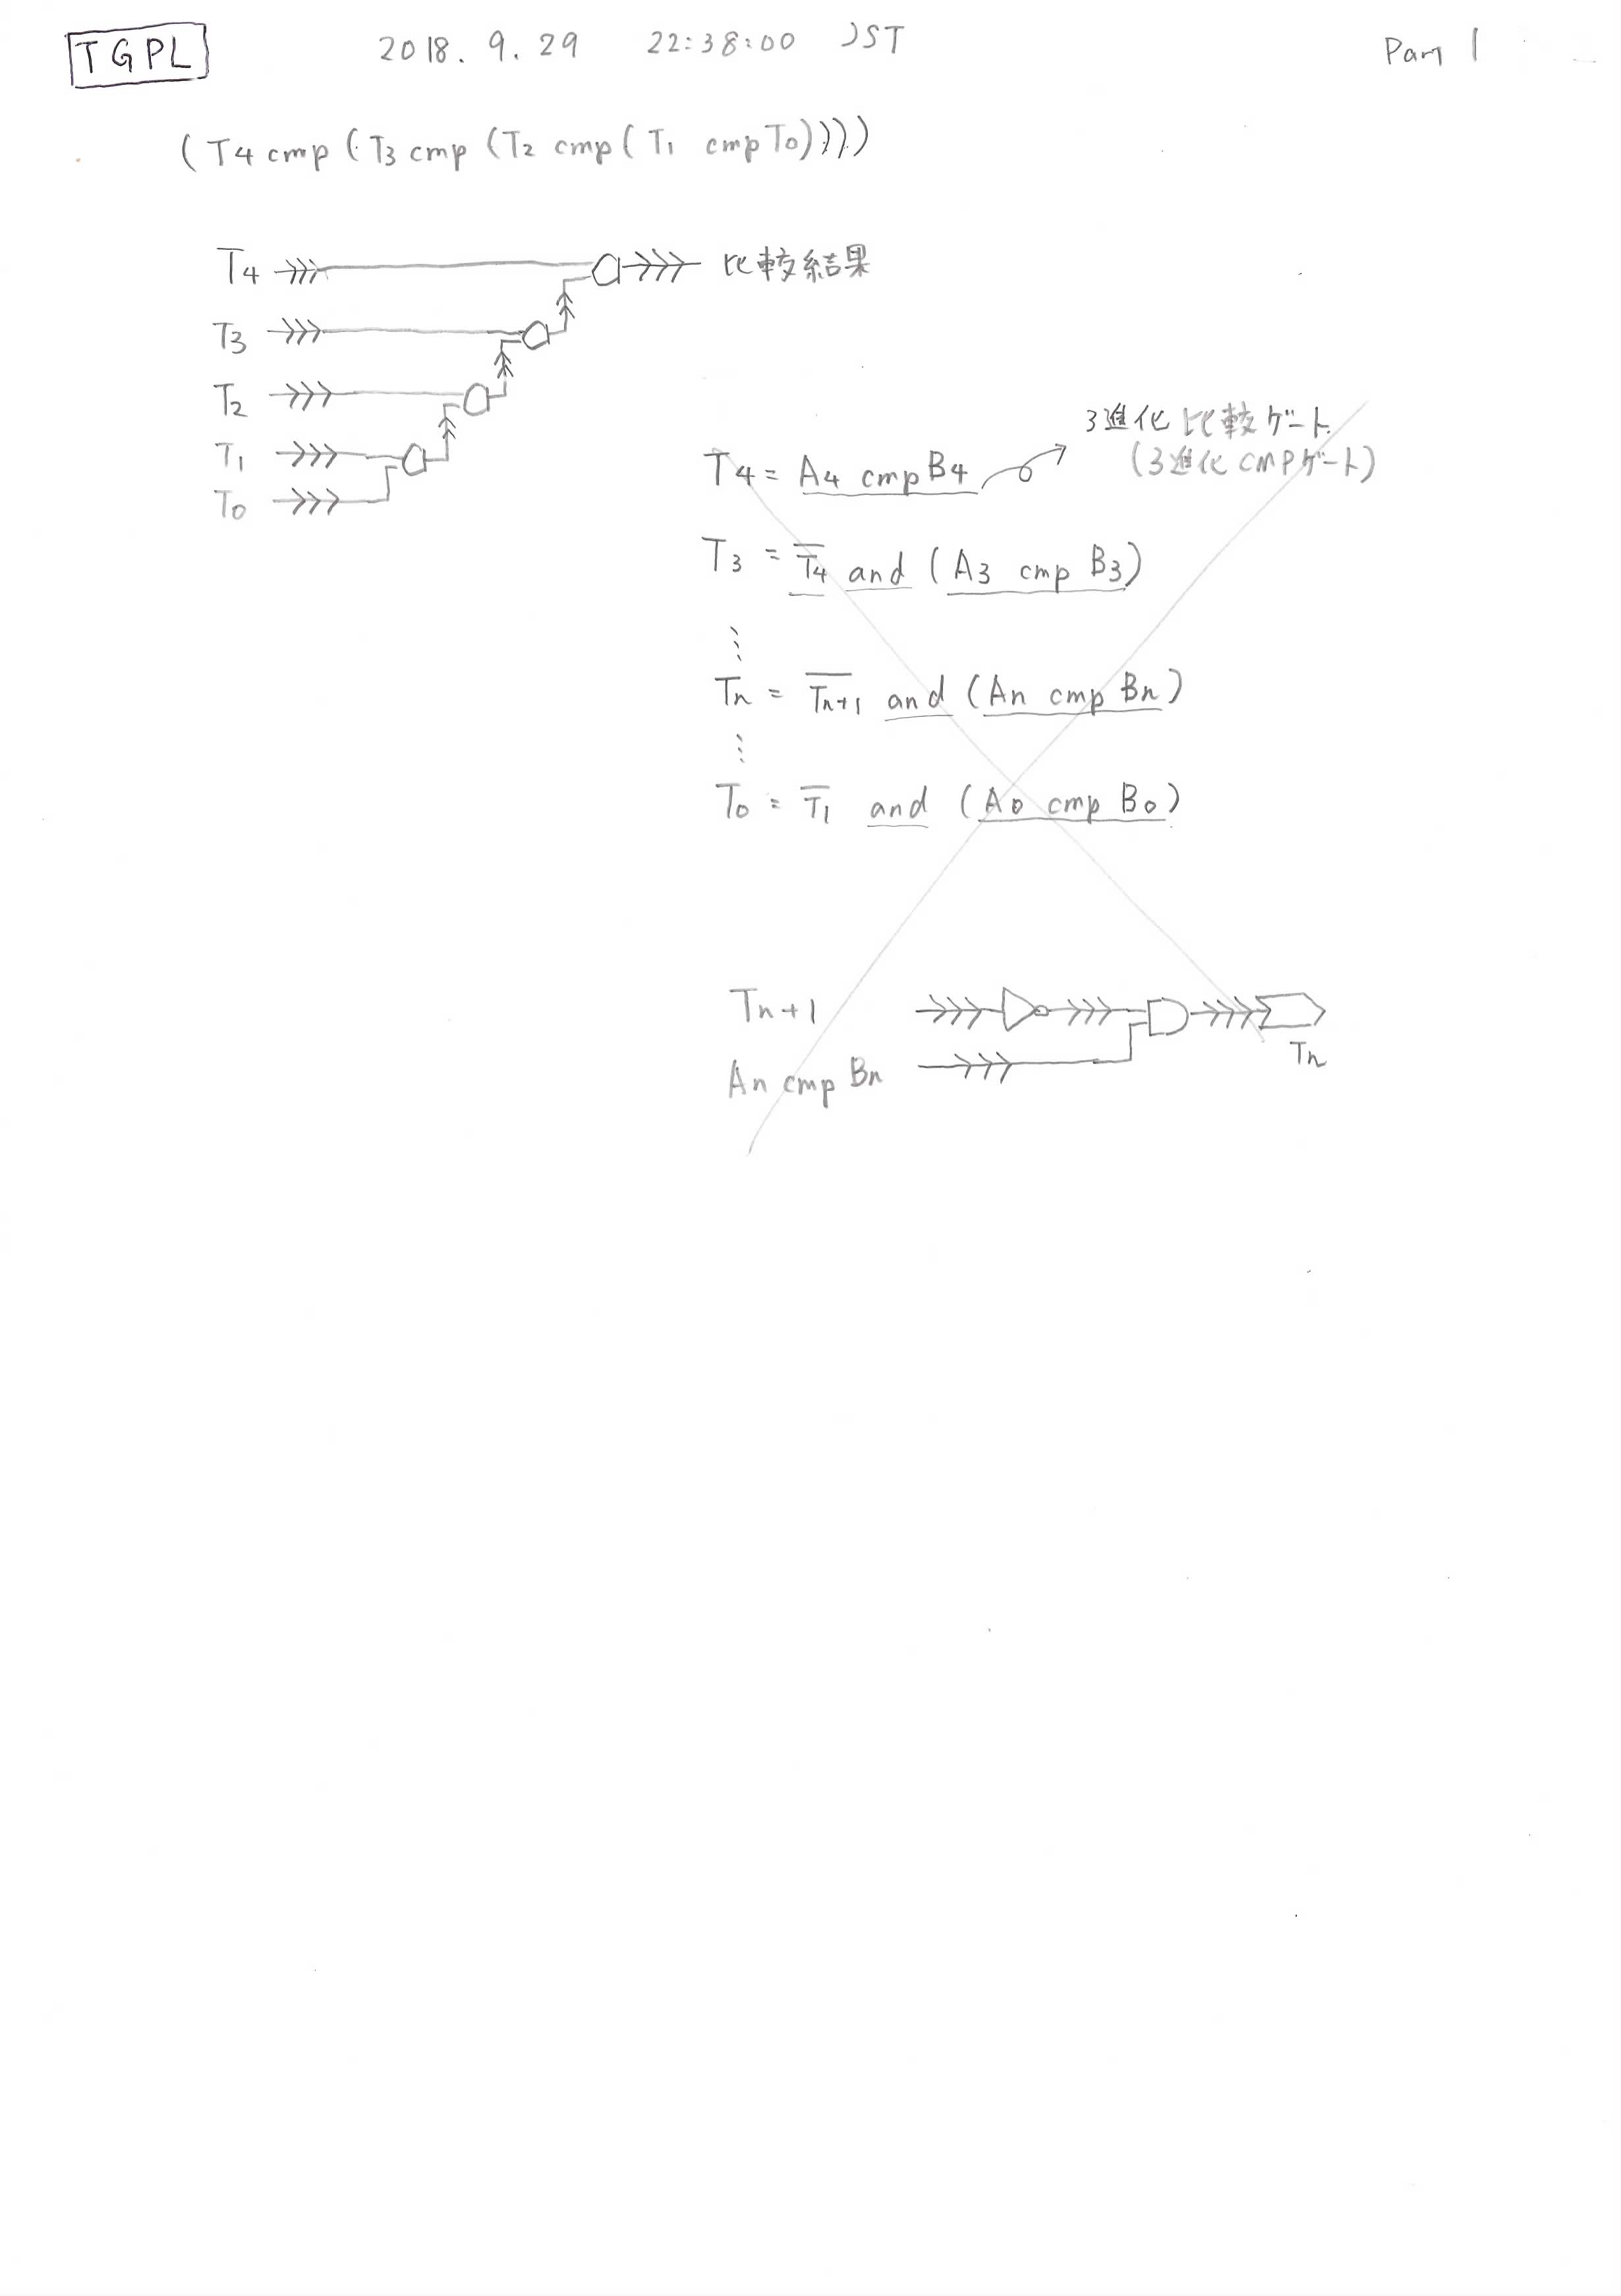 TGPL 2018. 9. 29 22:38:00 JST Part 1
(T4 cmp (T3 cmp (T2 cmp (T1 cmp T0))))
T4 比較結果
T3
T2
T1
T0
3進化 比較ゲート
(3進化 CMPゲート)
T4 = A4 cmp B4
T3 = T̅4 and (A3 cmp B3)
⋮
Tn = T̅n+1 and (An cmp Bn)
⋮
T0 = T̅1 and (A0 cmp B0)
Tn+1
An cmp Bn
Tn